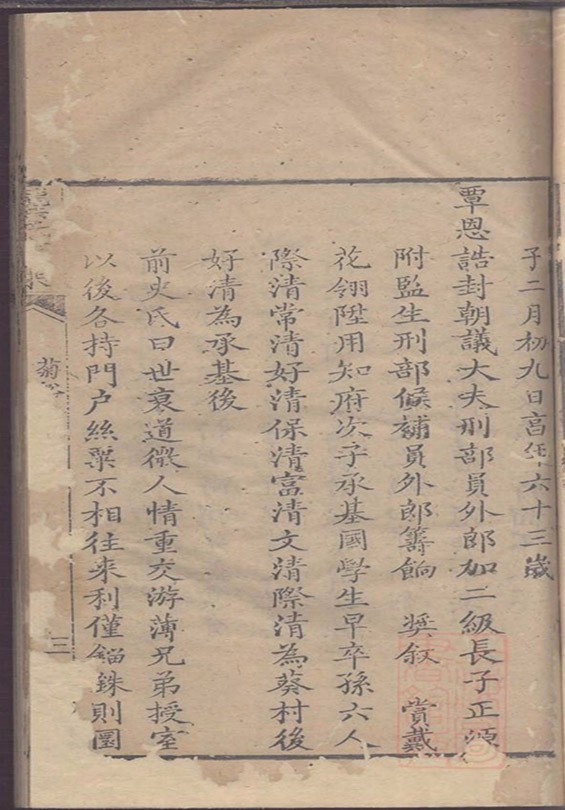 子二月初九日享年六十三歲
覃恩誥封朝議大夫刑部員外郎加二級長子正源
附監生刑部候補員外郎籌餉 奬叙 賞戴
花翎陞用知府次子承基國學生早卒孫六人
際清常清好清保清富清文清際清為葵村後
好清為承基後
前史氏曰世衰道微人情重交游薄兄弟授室
以後各持門户絲粟不相往来利僅錙銖則圜
三